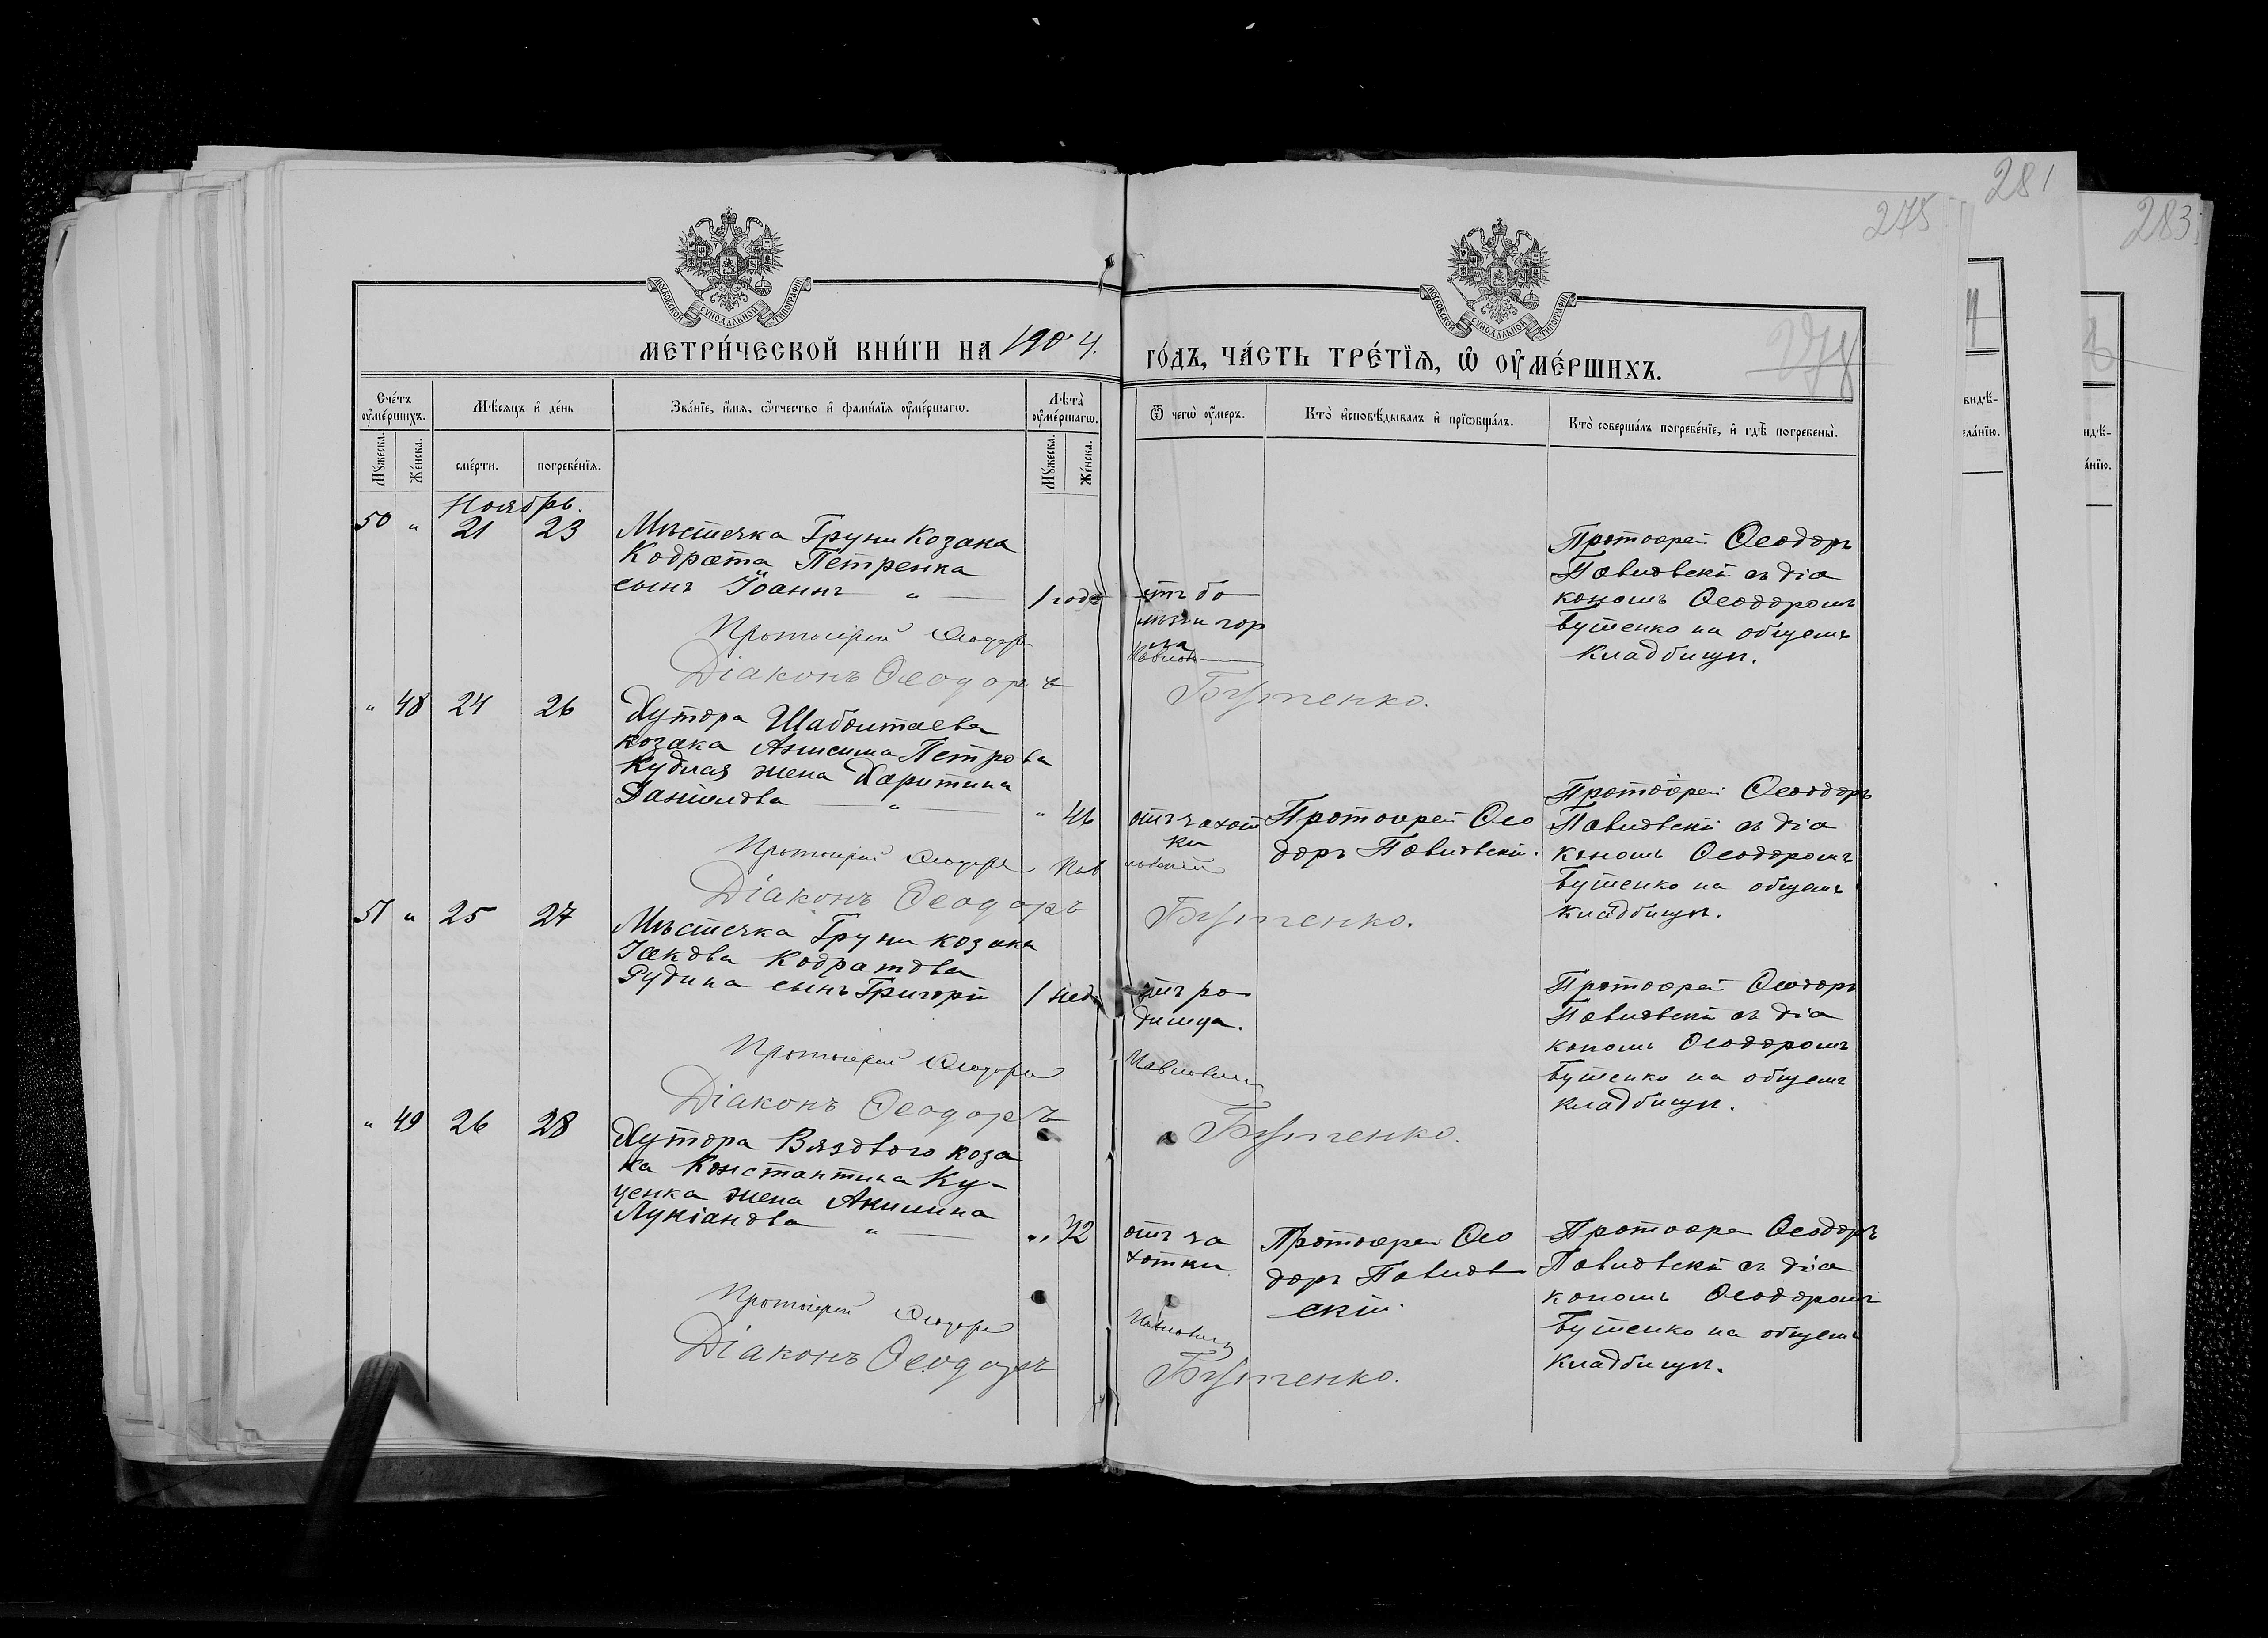 281
275
283
МОСКОВСКОЙ СѴНОДАЛЬНОЙ ТИПОГРАФІИ
МОСКОВСКОЙ СѴНОДАЛЬНОЙ ТИПОГРАФІИ
МЕТРИ́ЧЕСКОЙ КНИ́ГИ НА 1904.
ГО́ДЪ, ЧА́СТЬ ТРЕ́ТЇѦ, Ѡ҆ ОУ҆МЕ́РШИХЪ.
278
Сче́тъ оу҆ме́ршихъ.
Мѣ́сяцъ и҆ де́нь
Зва́нїе, и҆́мѧ, ѻ҆́тчество и҆ фами́лїѧ оу҆ме́ршагѡ.
Лѣта̀ оу҆ме́ршагѡ.
Ѿ чегѡ̀ оу҆́меръ.
Кто̀ и҆сповѣ́дывалъ и҆ прїѡбща́лъ.
Кто̀ соверша́лъ погребе́нїе, и҆ гдѣ̀ погребены̀.
Мꙋ́жеска.
Же́нска.
сме́рти.
погребе́нїѧ.
Мꙋ́жеска.
Же́нска.
Ноябрь.
50 " 21 23
Мѣстечка Груни Козака
Кодрата Петренка
сынъ Іоаннъ "
1 года
отъ бо
лѣзни гор
ла
Протоіерей Ѳеодоръ
Павловскій съ діа
кономъ Ѳеодоромъ
Бутенко на общемъ
кладбищѣ.
Протоіерей Ѳеодоръ
Діаконъ Ѳеодоръ Бутенко.
" 48 24 26
Хутора Шаболтаева
козака Анисима Петрова
Кудлая жена Харитина
Данилова "
" 46
отъ чахот
ки
Протоіерей Ѳео
доръ Павловскій.
Протоіерей Ѳеодоръ
Павловскій съ діа
кономъ Ѳеодоромъ
Бутенко на общемъ
кладбищѣ.
Протоіерей Ѳеодоръ Павловскій
Діаконъ Ѳеодоръ Бутенко.
51 " 25 27
Мѣстечка Груни козака
Іакова Кодратова
Рудина сынъ Григорій
1 нед.
отъ ро
димца.
Протоіерей Ѳеодоръ
Павловскій съ діа
кономъ Ѳеодоромъ
Бутенко на общемъ
кладбищѣ.
Протоіерей Ѳеодоръ Павловскій
Діаконъ Ѳеодоръ Бутенко.
" 49 26 28
Хутора Вязового коза
ка Константина Ку-
ценка жена Акилина
Лукіанова "
" 42
отъ ча
хотки
Протоіерей Ѳео
доръ Павлов
скій.
Протоіерей Ѳеодоръ
Павловскій съ діа
кономъ Ѳеодоромъ
Бутенко на общемъ
кладбищѣ.
Протоіерей Ѳеодоръ Павловскій
Діаконъ Ѳеодоръ Бутенко.